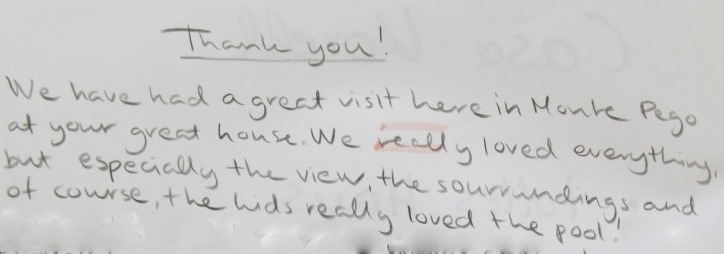 Thank you!
We have had a great visit here in Monte Pego
at your great house. We really loved everything,
but especially the view, the sourrundings and
of course, the kids really loved the pool!